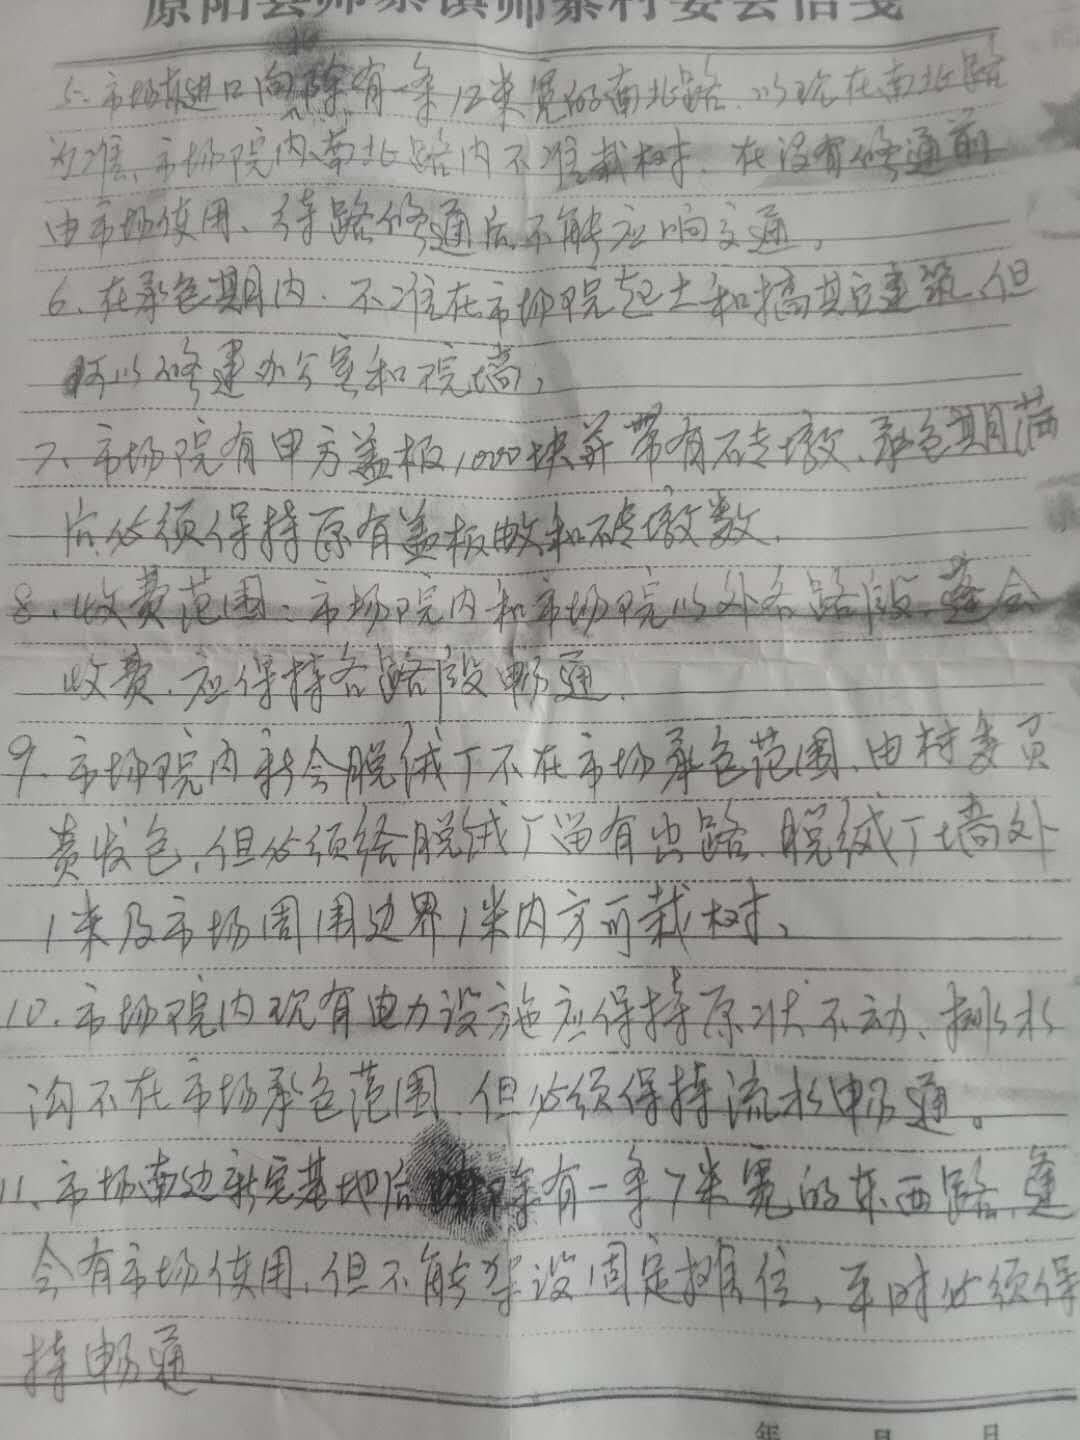 原阳县师寨镇师寨村委会信笺
5、市场进口向 有一条12米宽的南北路、以现在南北路
为准、市场院内、南北路内不准栽树、在没有修通前
由市场使用、待路修通后不能应响交通。
6、在承包期内、不准在市场院起土和搞其它建筑、但
可以修建办公室和院墙、
7、市场院有甲方盖板1000块并带有砖墩、承包期满
后必须保持原有盖板数和砖墩数、
8、收费范围：市场院内和市场院以外各路段、逢会
收费、应保持各路段畅通、
9、市场院内新会脱绒厂不在市场承包范围、由村委员
责发包、但必须给脱绒厂留有出路、脱绒厂墙外
1米及市场周围边界1米内方可栽树、
10、市场院内现有电力设施应保持原状不动、排水
沟不在市场承包范围、但必须保持流水畅通。
11、市场南边新宅基地后 有一条7米宽的东西路、逢
会有市场使用、但不能架设固定摊位，平时必须保
持畅通、
年 月 日